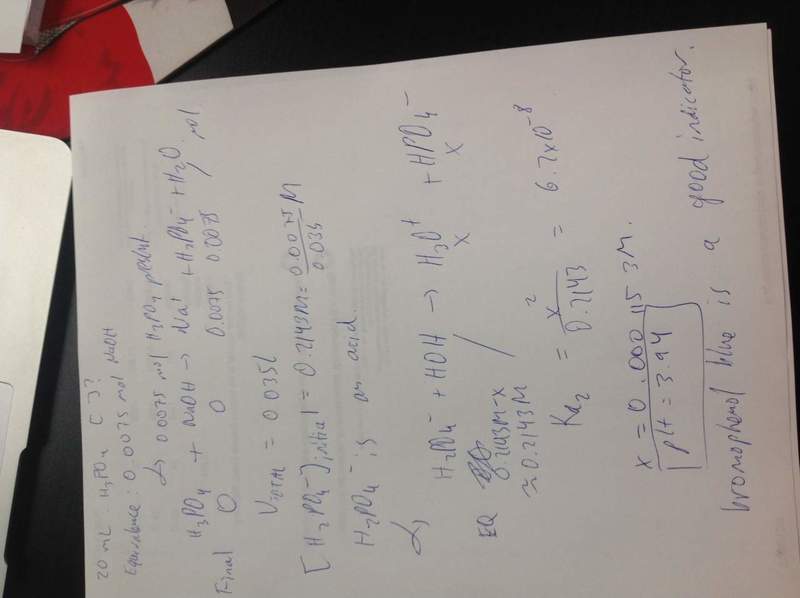 20 mL H₃PO₄ [ ]?
Equivalence: 0.0075 mol NaOH
↳ 0.0075 mol H₃PO₄ present.
H₃PO₄ + NaOH → Na⁺ + H₂PO₄⁻ + H₂O
Final 0 0 0.0075 0.0075 / mol
V total = 0.035L
[H₂PO₄⁻]initial = 0.2143M = 0.0075/0.035 M
H₂PO₄⁻ is an acid.
↳ H₂PO₄⁻ + HOH → H₃O⁺ + HPO₄⁻
EQ 0.2143M-x / x x
≈ 0.2143M
Ka₂ = x²/0.2143 = 6.2x10⁻⁸
x = 0.000115 3M.
pH = 3.94
bromophenol blue is a good indicator.